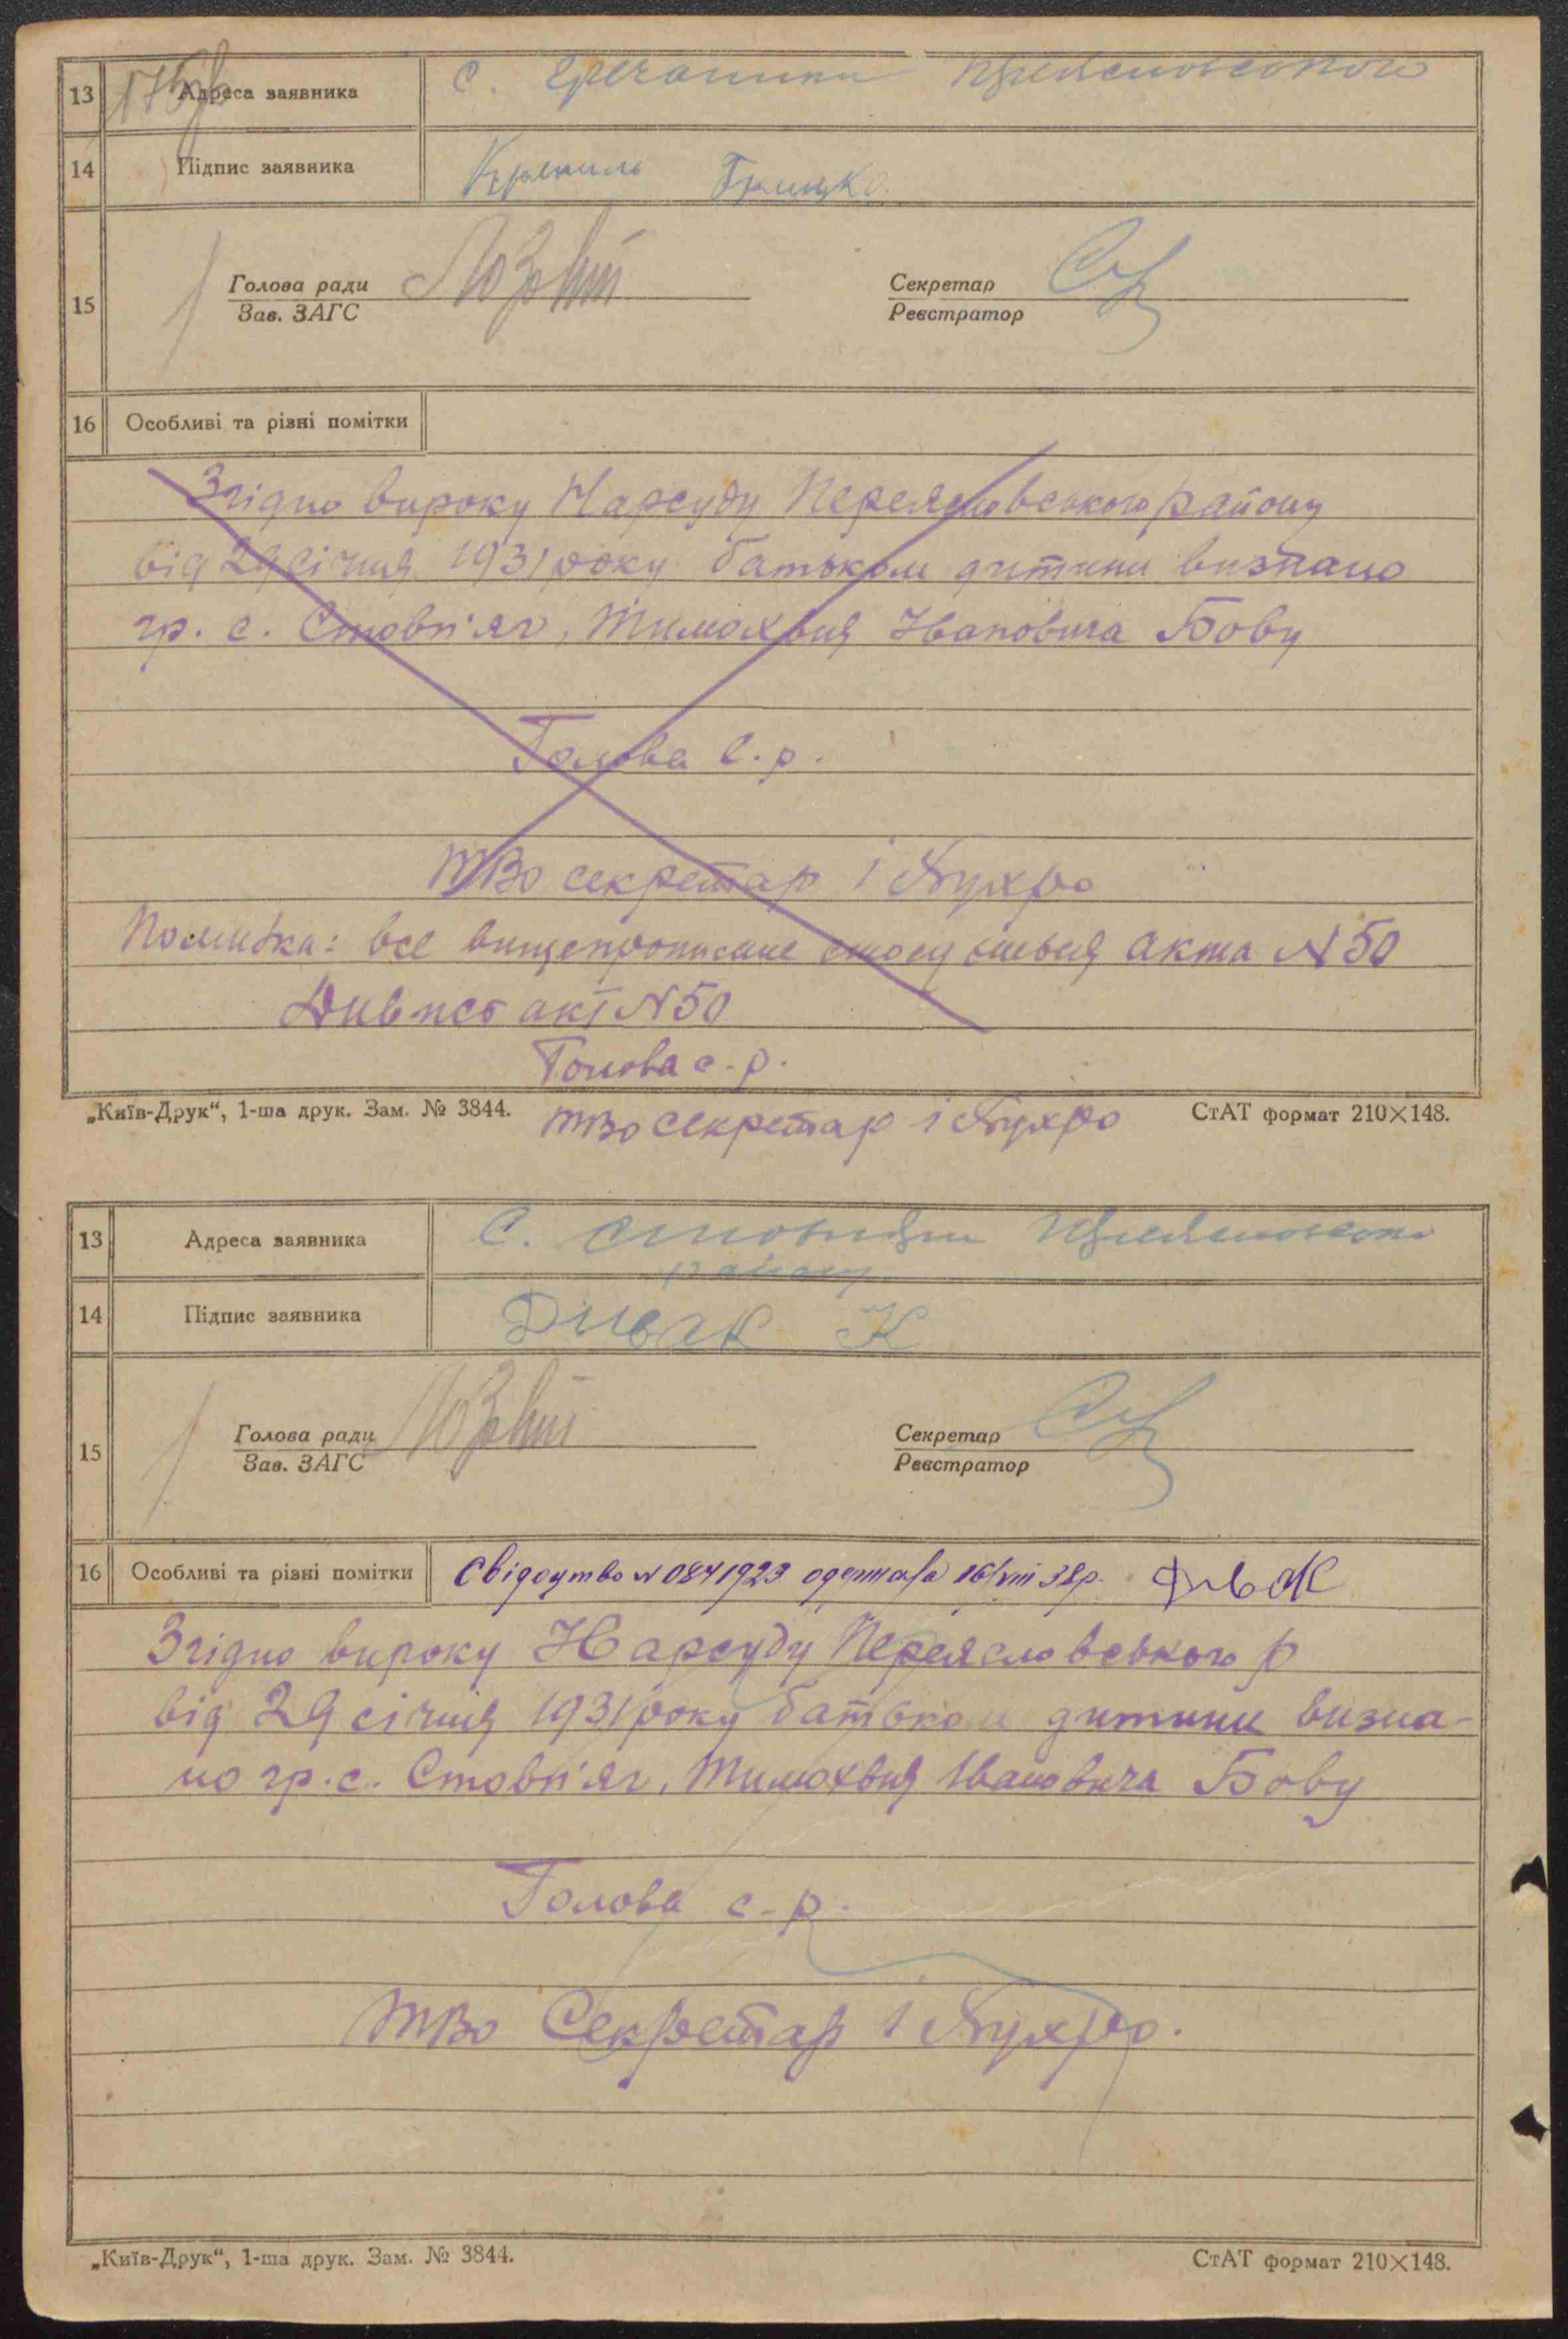 13 Адреса заявника с.
14 Підпис заявника Кремиль Грицко
15 Голова ради Секретар
Зав. ЗАГС Реєстратор
16 Особливі та різні помітки
Згідно вироку Нарсуду Переяславського району
від 29 січня 1931 року батьком дитини визнано
гр. с. Стовп'яг, Тимохвія Івановича Бову
Голова с.р.
ТВо секретар
Помилка: все вищепрописане акта N 50
Дивись акт N 50
Голова с-р.
„Київ-Друк“, 1-ша друк. Зам. № 3844. ТВо секретар СтАТ формат 210×148.
13 Адреса заявника С.
району
14 Підпис заявника Дивак К
15 Голова ради Секретар
Зав. ЗАГС Реєстратор
16 Особливі та різні помітки Свідоцтво N 0841923 16/VIII 38р.
Згідно вироку Нарсуду Переяславського р
від 29 січня 1931 року батьком дитини визна-
но гр. с. Стовп'яг, Тимохвія Івановича Бову
Голова с-р.
ТВо Секретар
„Київ-Друк“, 1-ша друк. Зам. № 3844. СтАТ формат 210×148.